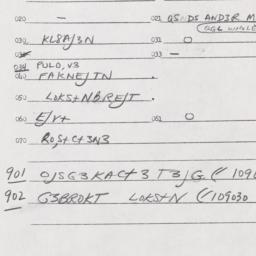 020 — 021 QS DS AND3R M
030 KL8AJ3N 031 O
033 —
034 PULO, V3
040 FAKNEJTN .
050 LOKS+NBREJT .
060 E/V+ 061 O
070 RO,S+C+3N3
901 OJSG3KACt3 T3JG (/ 1090
902 G3BROKT LOKS+N (/109030